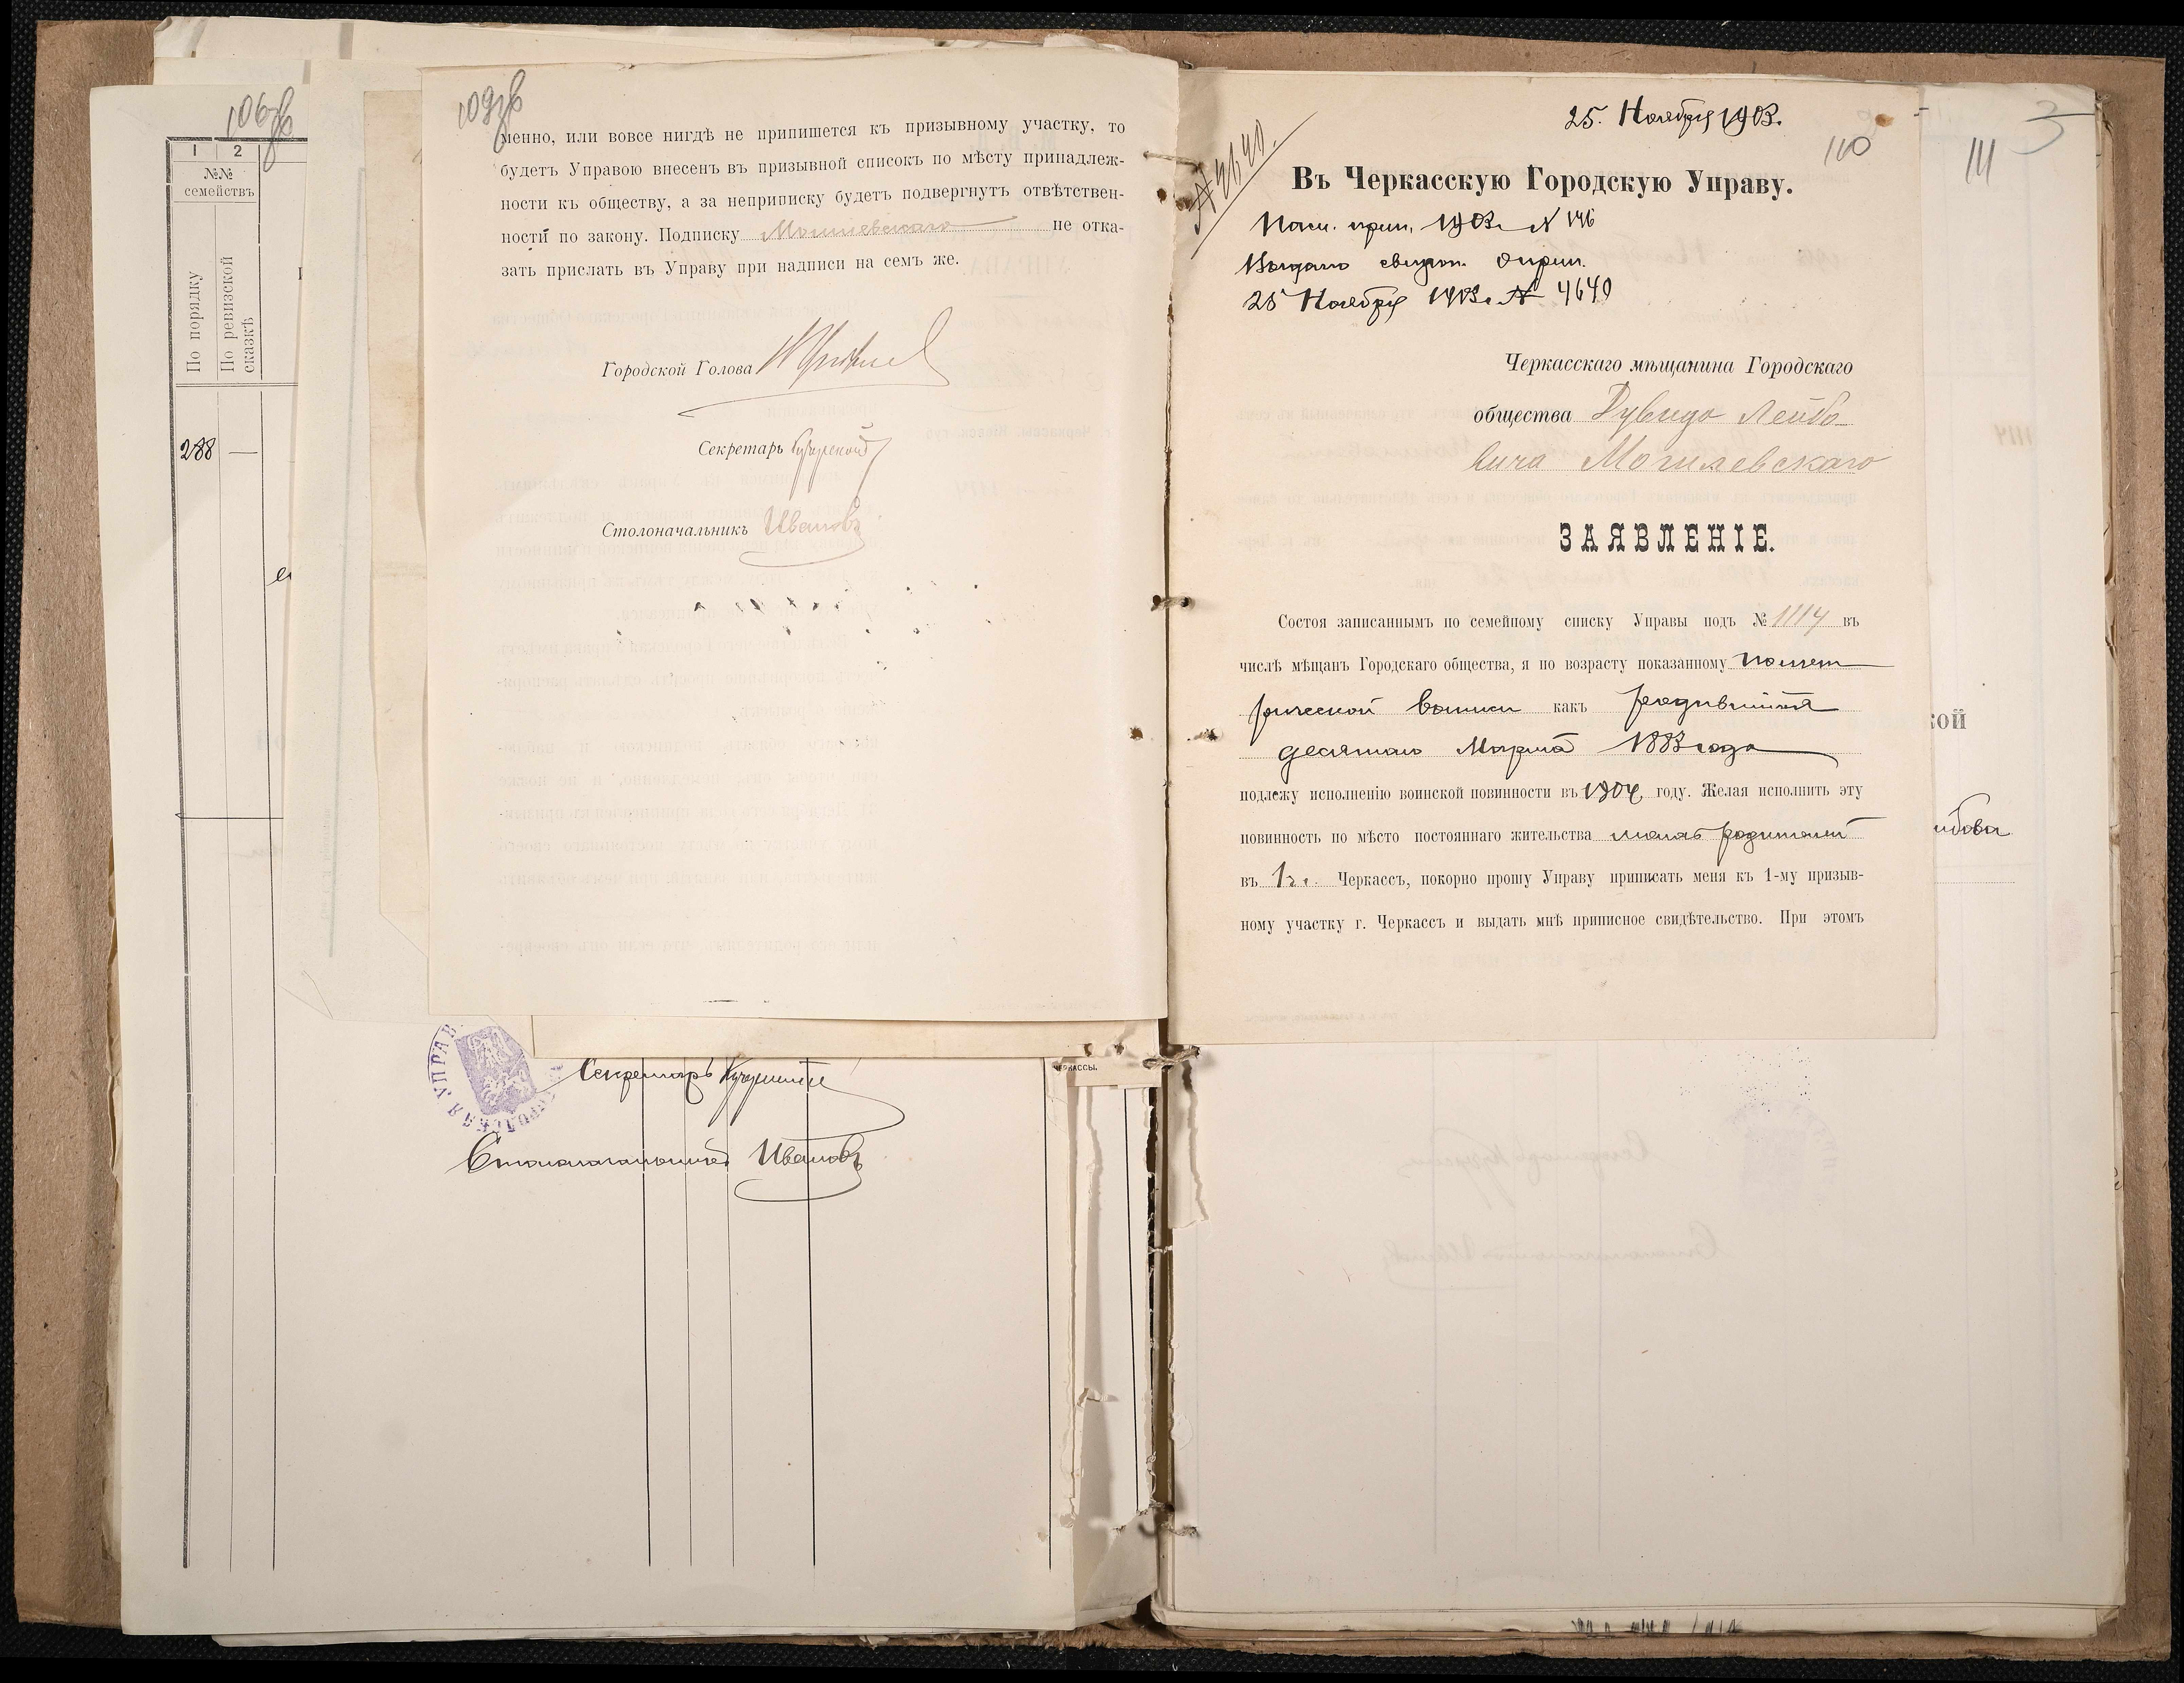 106об
1 2
№№
семействъ
По порядку
По ревизской
сказкѣ
288 —
109об
менно, или вовсе нигдѣ не припишется къ призывному участку, то
будетъ Управою внесенъ въ призывной списокъ по мѣсту принадлеж-
ности къ обществу, а за неприписку будетъ подвергнутъ отвѣтствен-
ности по закону. Подписку Могилевскаго не отка-
зать прислать въ Управу при надписи на семъ же.
Городской Голова
Секретарь
Столоначальникъ Ивановъ
Секретарь
Столоначальникъ Ивановъ
ЧЕРКАССЫ.
25 Ноября 1903.
110
№ 4640.
Въ Черкасскую Городскую Управу.
1903 г. № 146
Выдано свидѣт. о прип.
25 Ноября 1903 г. № 4640
Черкасскаго мѣщанина Городскаго
общества Дувида Лейбо-
вича Могилевскаго
ЗАЯВЛЕНІЕ.
Состоя записаннымъ по семейному списку Управы подъ № 1114 въ
числѣ мѣщанъ Городскаго общества, я по возрасту показанному по мет
рической выписи какъ родившійся
десятаго Марта 1883 года
подлежу исполненію воинской повинности въ 1904 году. Желая исполнить эту
повинность по мѣсто постояннаго жительства моихъ родителей
въ г. Черкассъ, покорно прошу Управу приписать меня къ 1-му призыв-
ному участку г. Черкассъ и выдать мнѣ приписное свидѣтельство. При этомъ
111
3
кой